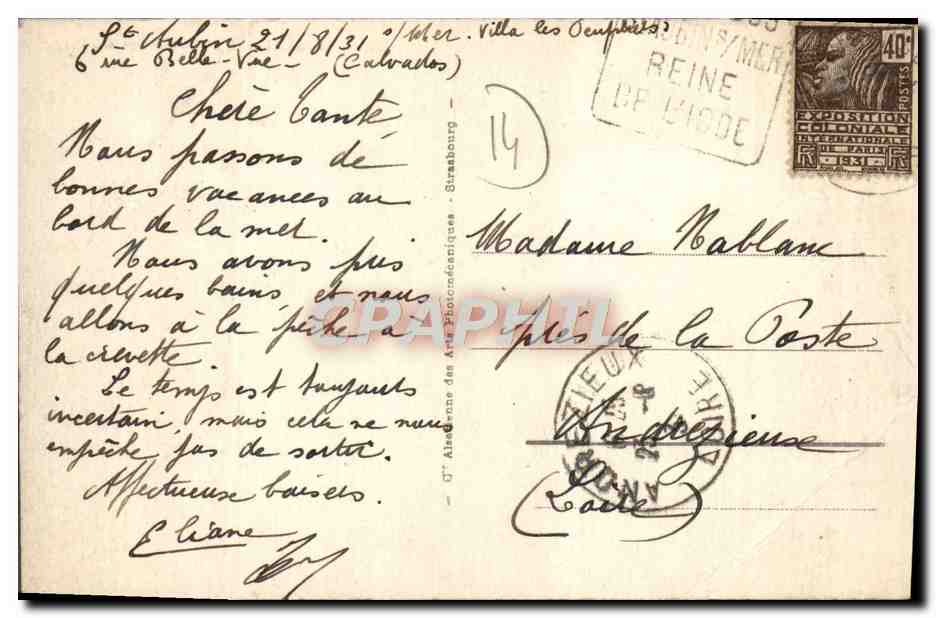 St Aubin 21/8/31 s/Mer. Villa les Peupliers
6 rue Belle-Vue - (Calvados)
Chère Tante
Nous passons de
bonnes vacances au
bord de la mer.
Nous avons pris
quelques bains, et nous
allons à la pêche à
la crevette
Le temps est toujours
incertain, mais cela ne nous
empêche pas de sortir.
Affectueux baisers.
Eliane
Cie Alsacienne des Arts Photomécaniques - Strasbourg
14
UBIN S/MER
REINE
DE L'IODE
40c
POSTES
EXPOSITION
COLONIALE
INTERNATIONALE
DE PARIS
RF 1931 RF
Madame Nablanc
près de la Poste
Andrézieux
(Loire)
ANDREZIEUX
LOIRE
CPAPHIL